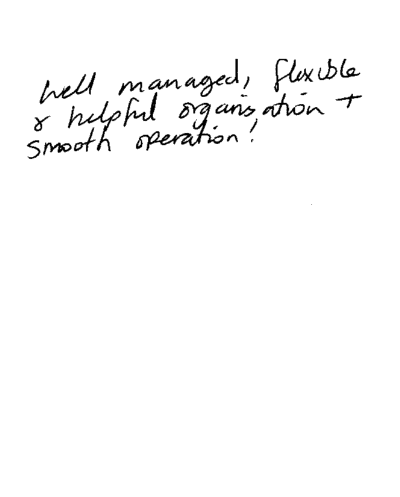 Well managed, flexible
& helpful organisation +
smooth operation!